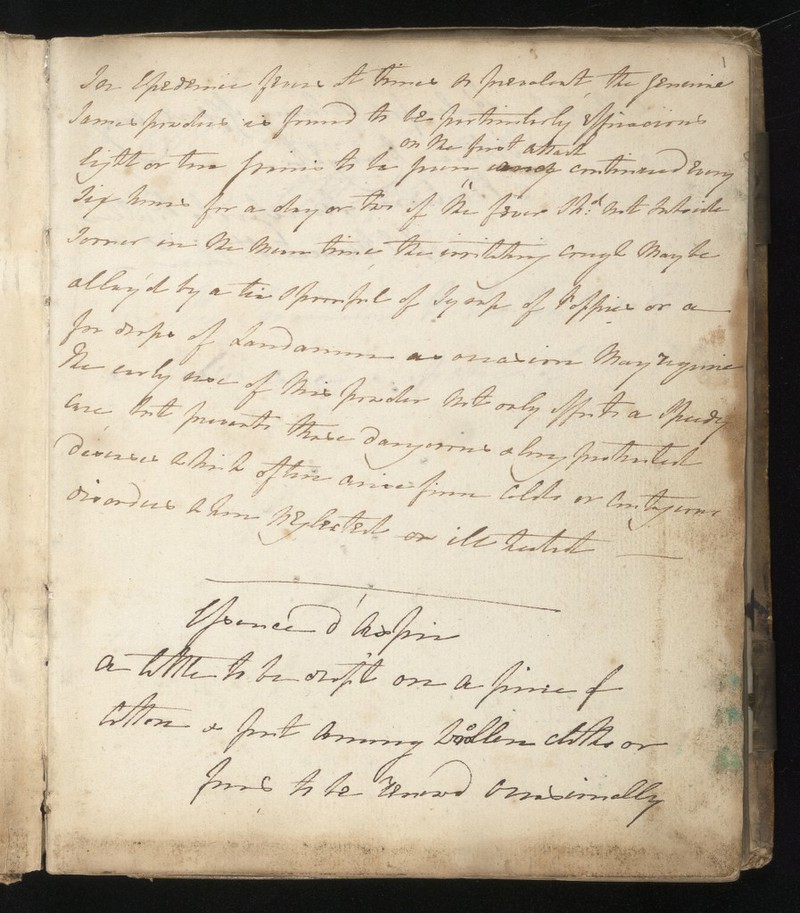 1
For Epedemic fevers at times so prevalent, the genuine
James powder is found to be particularly efficacious
Eight or ten grains to be given on the first attack continued every
Six hours for a day or two if the fever Shd. not subside
Sooner in the Mean time the irritating cough May be
allay'd by a tea Spoonful of Syrup of Poppies or a
few drops of Laudanum as occasion May require
The early use of this powder not only effects a Speedy
cure but prevents those dangerous & long protracted
diseases which often arise from Colds or Contagious
disorders when Neglected or ill treated
Essence d'Aspic
a little to be dropt on a piece of
Cotton & put among Woollen cloths or
furs to be renew'd occasionally